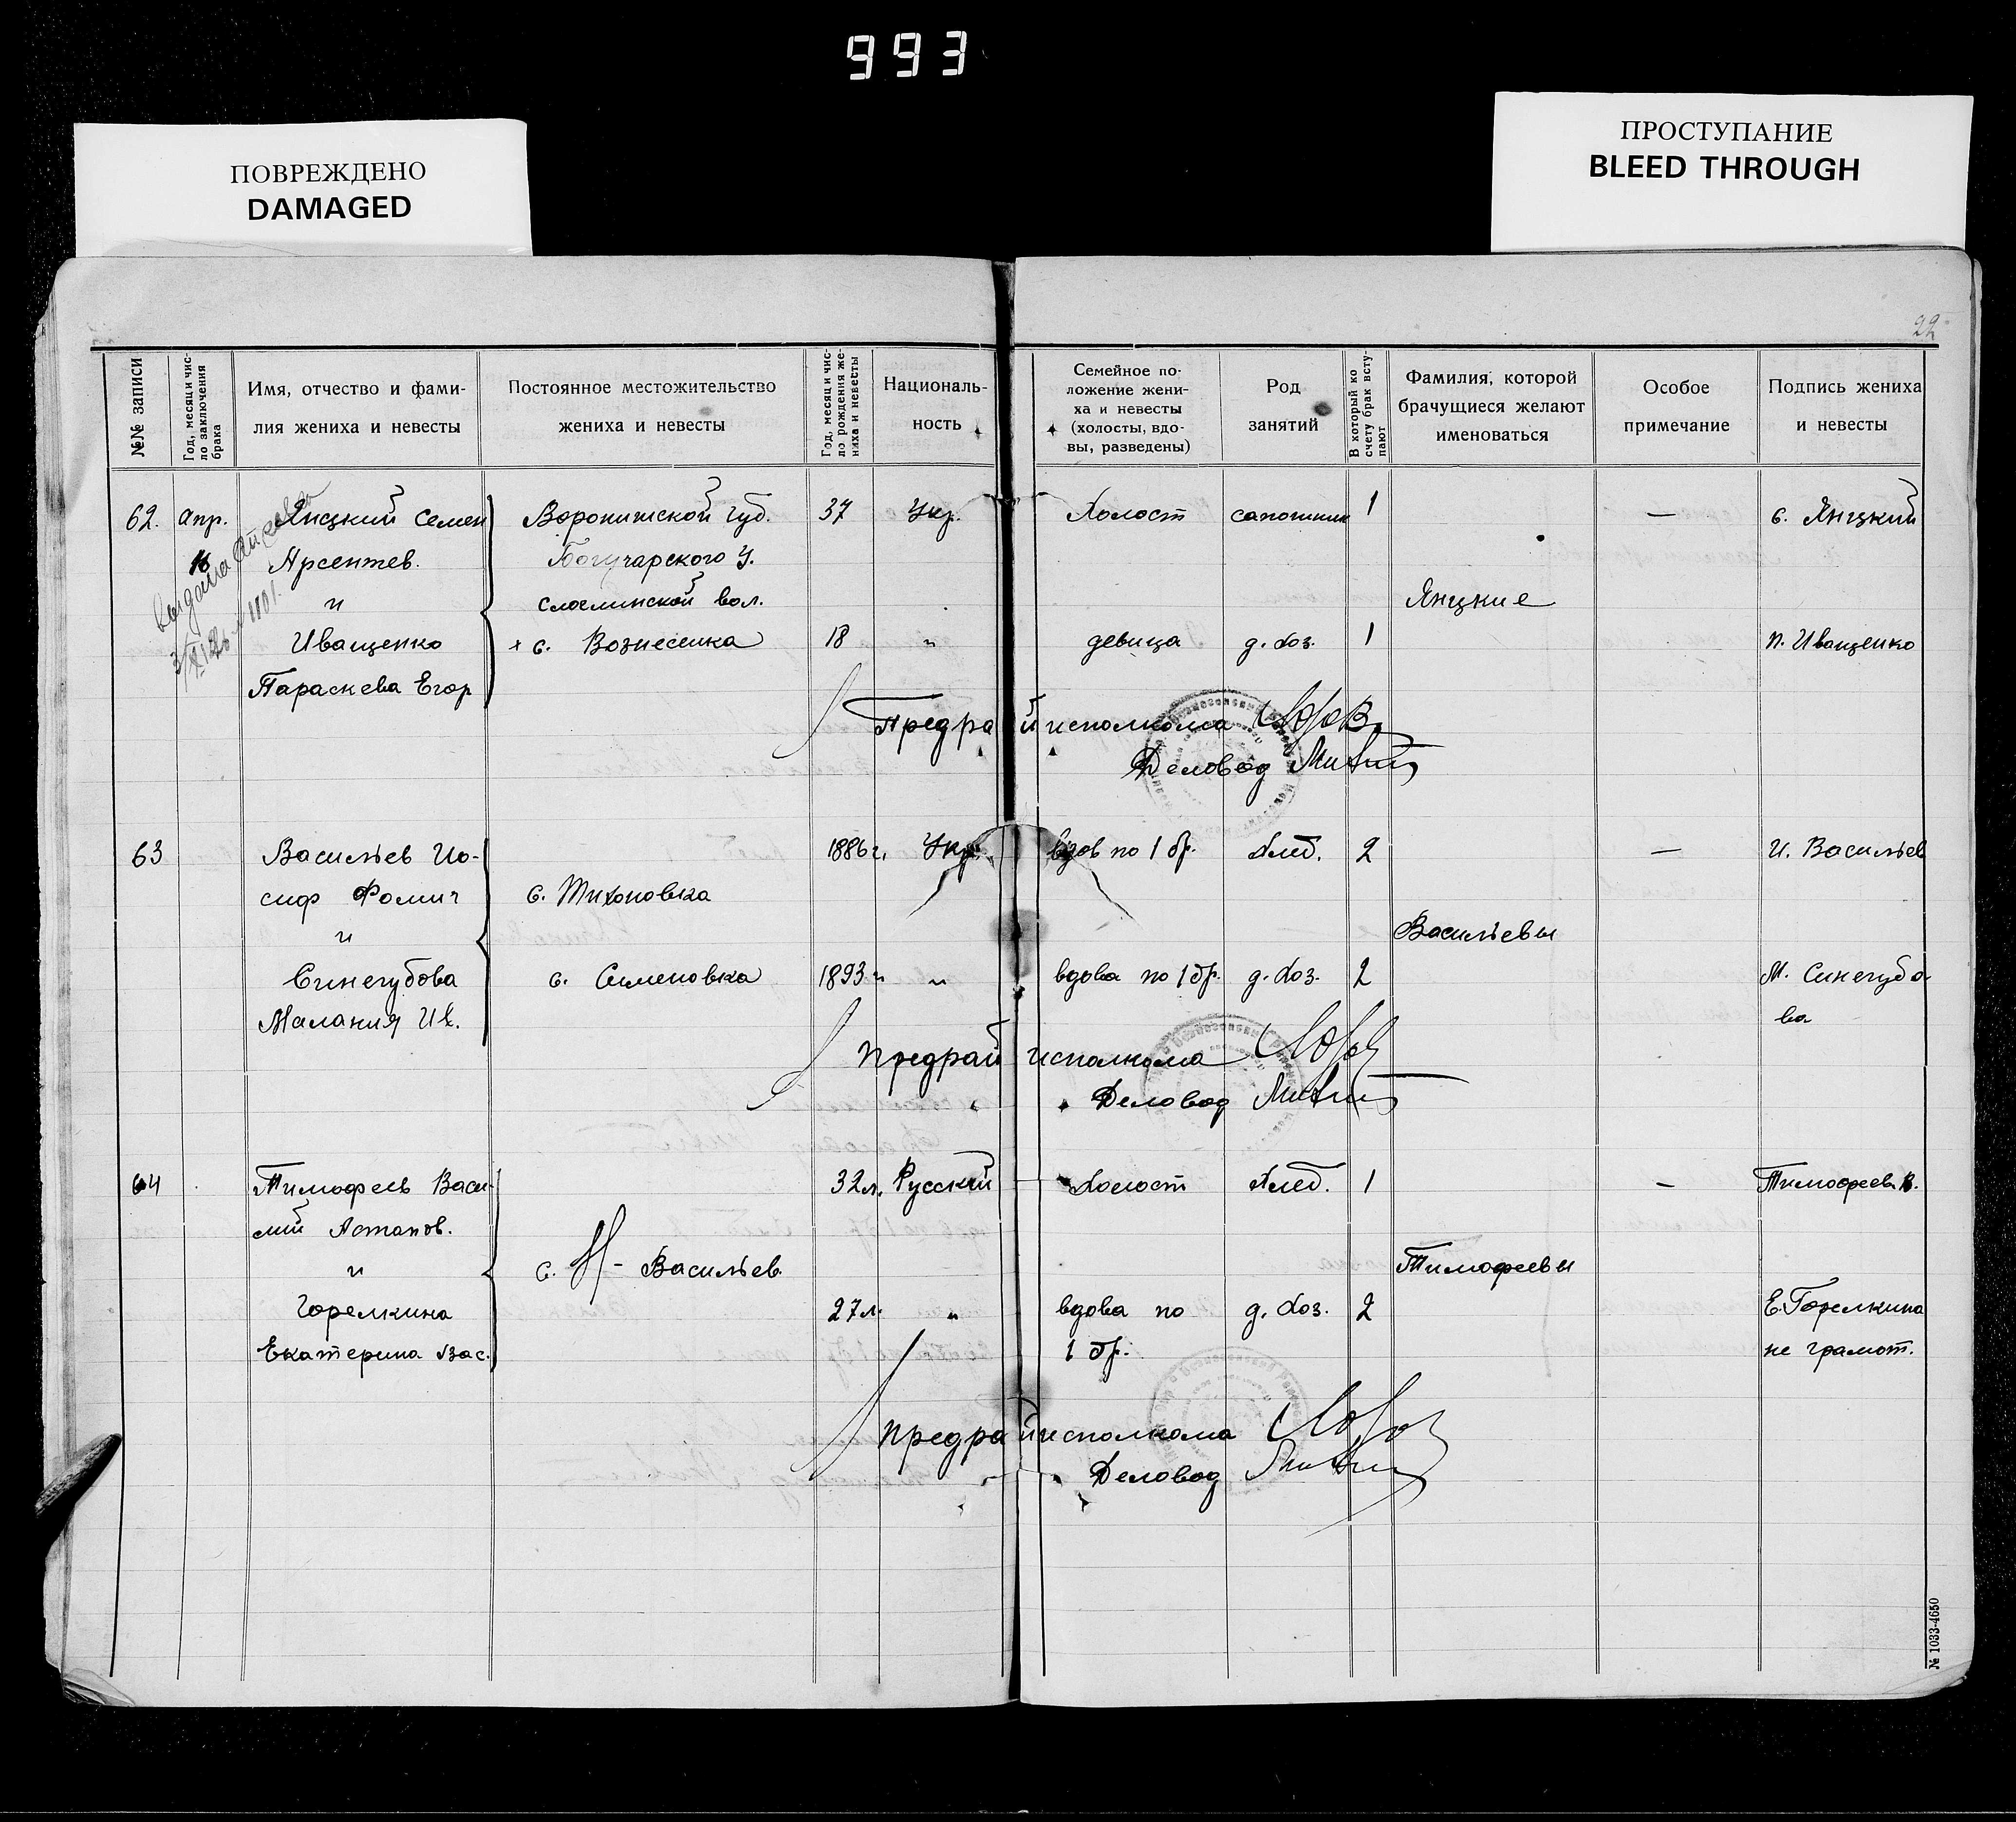 993
ПОВРЕЖДЕНО
DAMAGED
ПРОСТУПАНИЕ
BLEED THROUGH
22
№№ записи
Год, месяц и число заключения брака
Имя, отчество и фами-
лия жениха и невесты
Постоянное местожительство
жениха и невесты
Год, месяц и чис-
ло рождения же-
ниха и невесты
Националь-
ность
Семейное по-
ложение жени-
ха и невесты
(холосты, вдо-
вы, разведены)
Род
занятий
В который ко
счету брак всту-
пают
Фамилия, которой
брачущиеся желают
именоваться
Особое
примечание
Подпись жениха
и невесты
62. Апр. Янцкий Семен Воронижской Губ. 37 Укр. Холост сапожник 1 — С. Янцкий
16 Арсентев. Богучарского У.
и вол. Янцкие
Иващенко + с. Вознесенка 18 " девица д. хоз. 1 П. Иващенко
Параскева Егор
Предрайисполкома
Деловод
63 Васильев Ио- 1886 г. Укр. вдов по 1 бр. хлеб. 2 — И. Васильев
сиф Фомич с. Тихоновка
и Васильевы
Синегубова с. Семеновка 1893 г " вдова по 1 бр. д. хоз. 2 М. Синегубо
Малания Ив. ва
предрайисполкома
Деловод
64 Тимофеев Васи- 32 л. Русский Холост хлеб. 1 — Тимофеев В.
лий Астапов.
и с. Н- Васильев. Тимофеевы
Горелкина 27 л. " вдова по д. хоз. 2 Е. Горелкина
Екатерина Вас. 1 бр. не грамот.
предрайисполкома
Деловод
№ 1033-4650